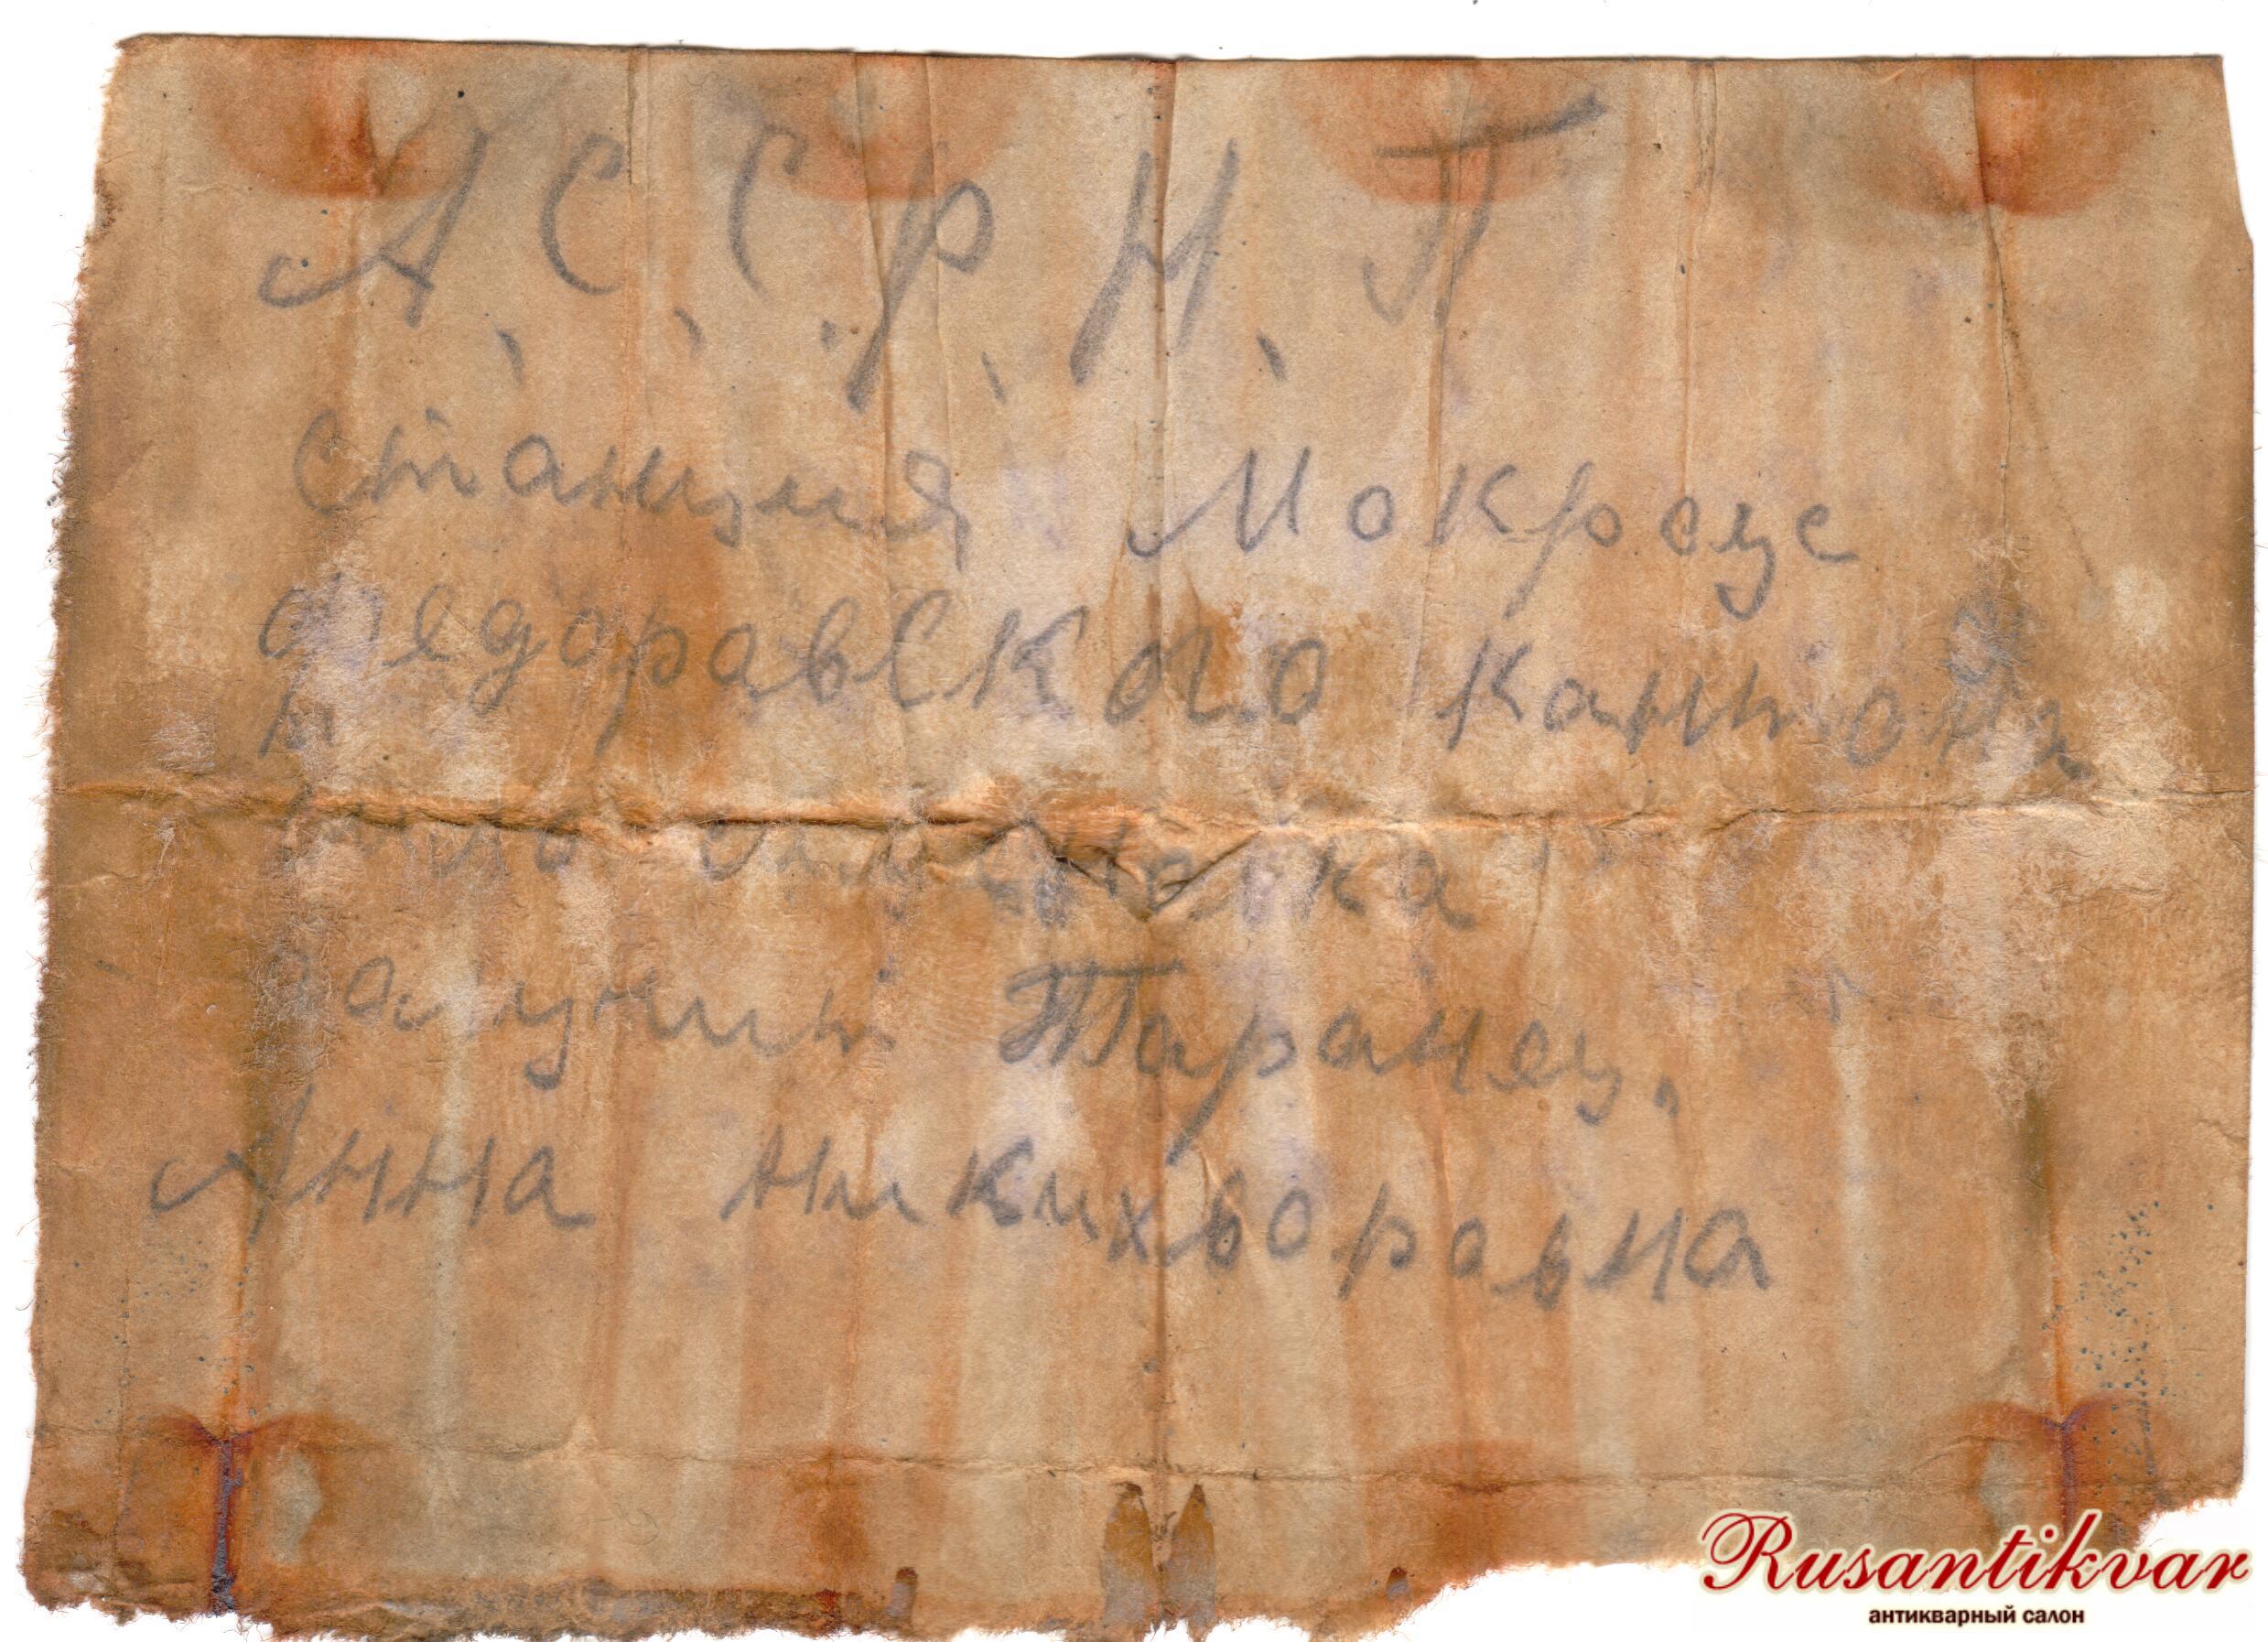 А. С. С. Р. Н. П
станция Мокроус
федоравского кантона
палучить Таранец.
Анна никихворавна
Rusantikvar
антикварный салон